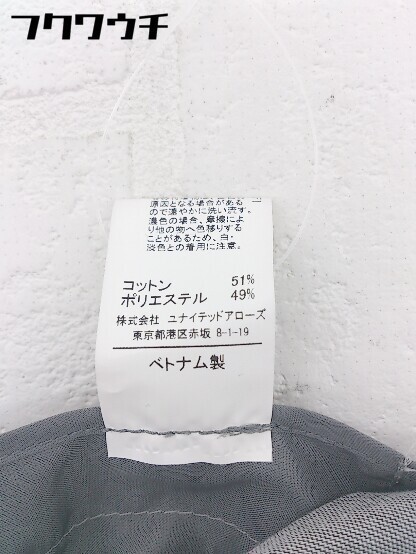 フクワウチ
原因となる場合がある
ので濃やかに洗い流す。
濃色の場合、摩擦によ
り他の物へ色移りする
ことがあるため、白・
淡色との着用に注意。
コットン 51%
ポリエステル 49%
株式会社 ユナイテッドアローズ
東京都港区赤坂 8-1-19
ベトナム製